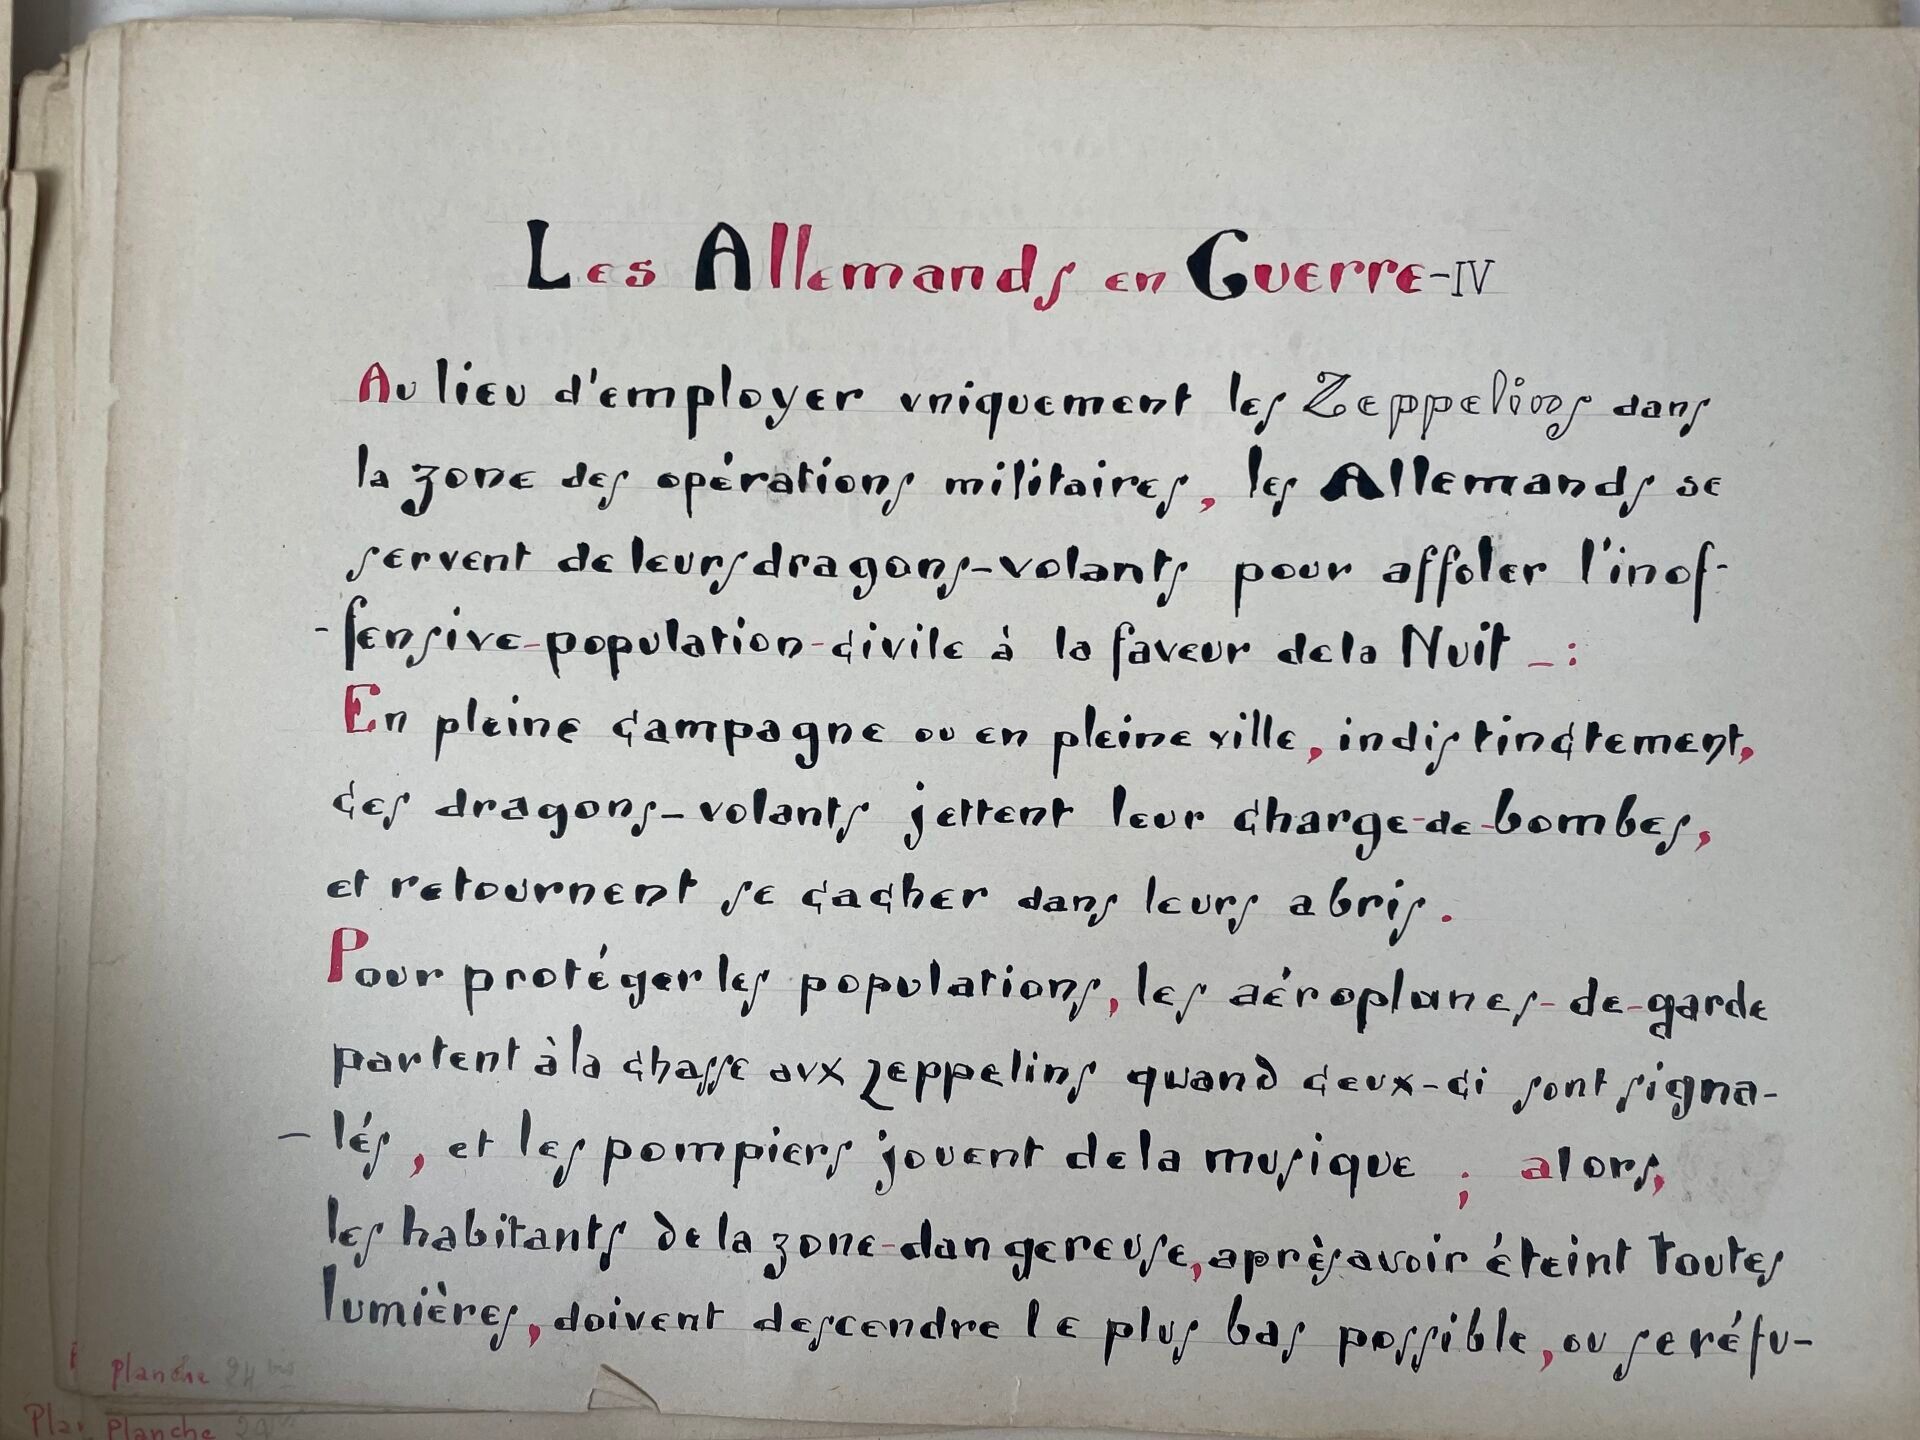 Les Allemands en Guerre-IV
Au lieu d'employer uniquement les Zeppelins dans
la zone des opérations militaires, les Allemands se
servent de leurs dragons-volants pour affoler l'inof-
-fensive-population-civile à la faveur de la Nuit _ :
En pleine campagne ou en pleine ville, indistinctement,
ces dragons-volants jettent leur charge-de-bombes,
et retournent se cacher dans leurs abris.
Pour protéger les populations, les aéroplanes-de-garde
partent à la chasse aux zeppelins quand ceux-ci sont signa-
- lés, et les pompiers jouent de la musique ; alors,
les habitants de la zone-dangereuse, après avoir éteint toutes
lumières, doivent descendre le plus bas possible, ou se réfu-
planche
Planche